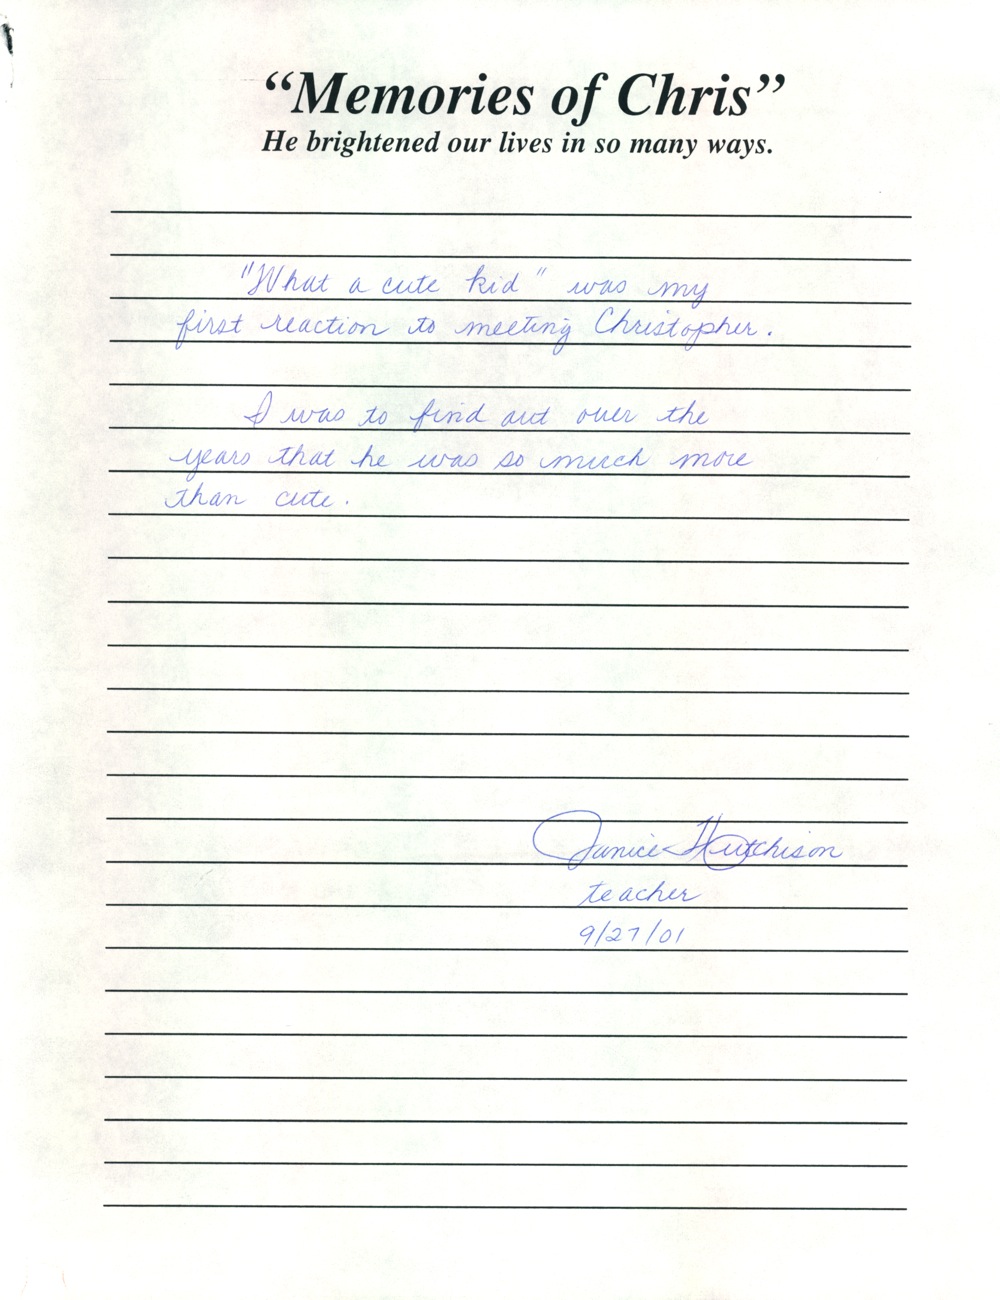 “Memories of Chris”
He brightened our lives in so many ways.
"What a cute kid" was my
first reaction to meeting Christopher.
I was to find out over the
years that he was so much more
than cute.
Janice Hutchison
teacher
9/27/01